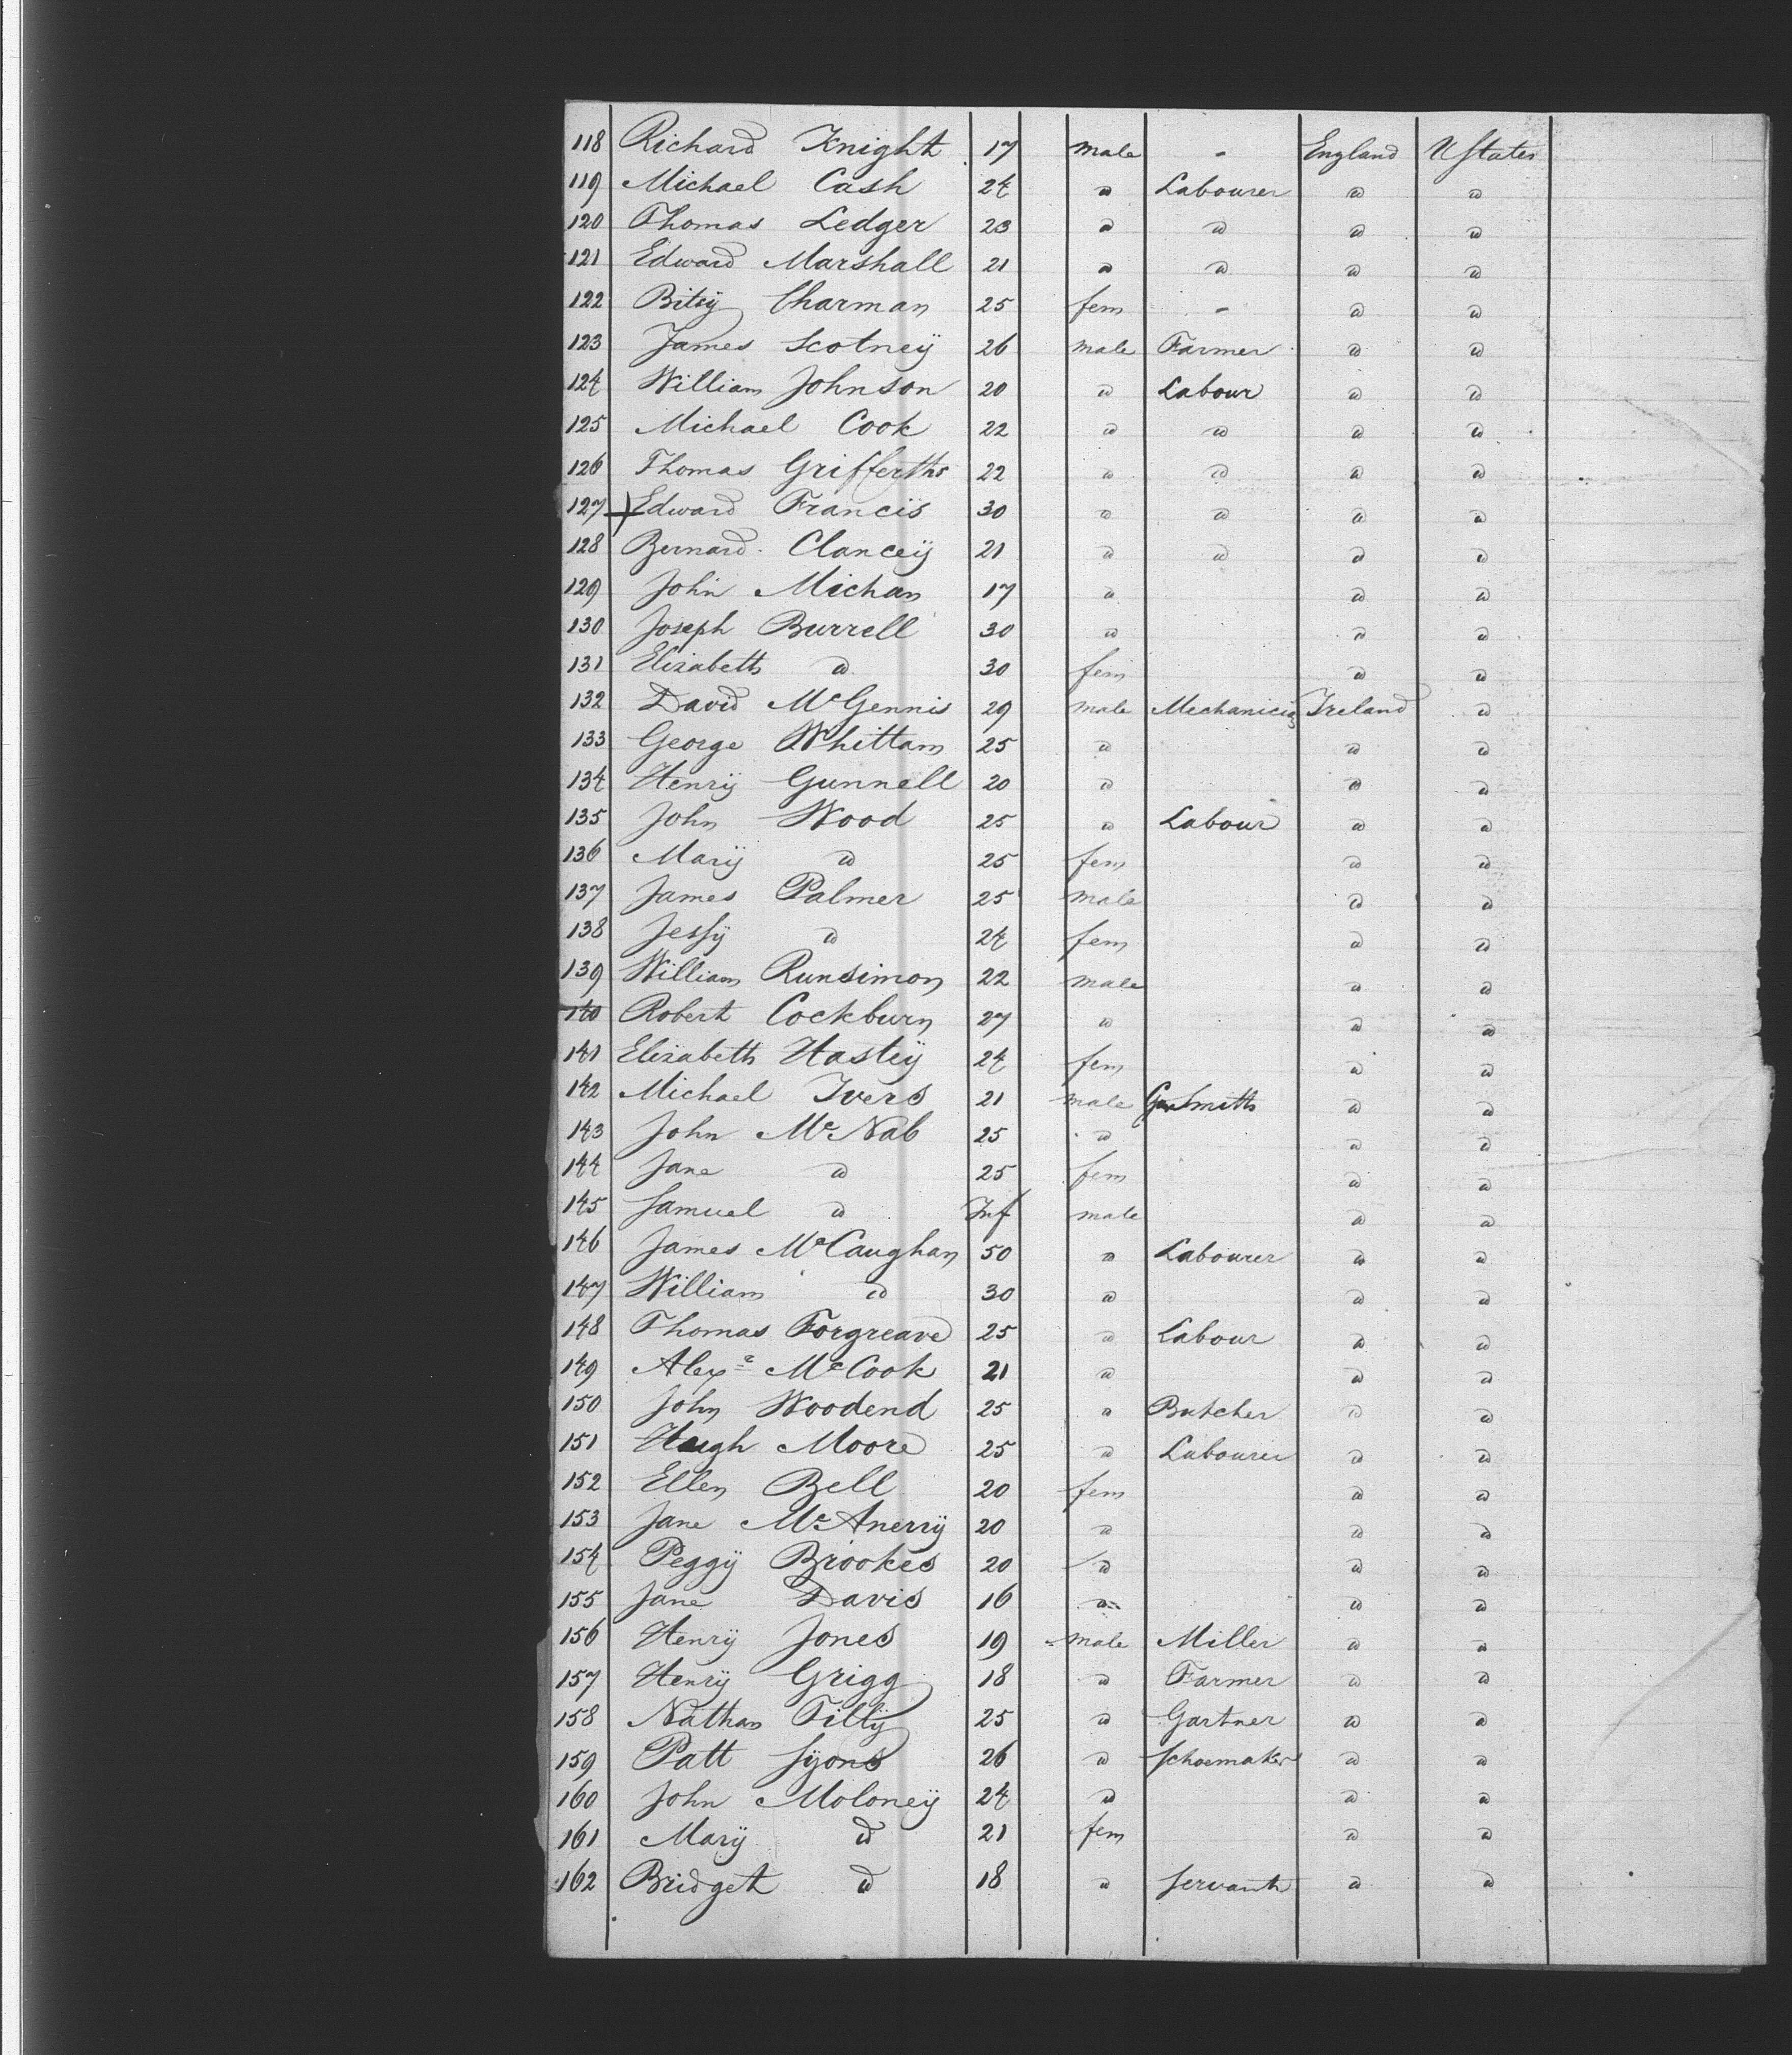 118 Richard Knight 17 male - England UStates
119 Michael Cash 24 do Labourer do do
120 Thomas Ledger 23 do do do do
121 Edward Marshall 21 do do do do
122 Bitsy Charman 25 fem - do do
123 James Scotney 26 male Farmer do do
124 William Johnson 20 do Labour do do
125 Michael Cook 22 do do do do
126 Thomas Grifferths 22 do do do do
127 Edward Francis 30 do do do do
128 Bernard Clancey 21 do do do do
129 John Michan 17 do do do
130 Joseph Burrell 30 do do do
131 Elizabeth do 30 fem do do
132 David McGennis 29 male Mechanicig Ireland do
133 George Whittam 25 do do do
134 Henry Gunnell 20 do do do
135 John Wood 25 do Labour do do
136 Mary do 25 fem do do
137 James Palmer 25 male do do
138 Jessy do 24 fem do do
139 William Runsimon 22 male do do
140 Robert Cockburn 27 do do do
141 Elizabeth Hastey 24 fem do do
142 Michael Ivers 21 male GunSmith do do
143 John McNab 25 do do do
144 Jane do 25 fem do do
145 Samuel do Inf male do do
146 James McCaughan 50 do Labourer do do
147 William do 30 do do do
148 Thomas Forgreave 25 do Labour do do
149 Alexr McCook 21 do do do
150 John Woodend 25 do Butcher do do
151 Hugh Moore 25 do Labourer do do
152 Ellen Bell 20 fem do do
153 Jane McAnerry 20 do do do
154 Peggy Brookes 20 do do do
155 Jane Davis 16 do do do
156 Henry Jones 19 male Miller do do
157 Henry Grigg 18 do Farmer do do
158 Nathan Tilly 25 do Gartner do do
159 Patt Lyons 26 do Schoemaker do do
160 John Moloney 24 do do do
161 Mary do 21 fem do do
162 Bridget do 18 do Servant do do